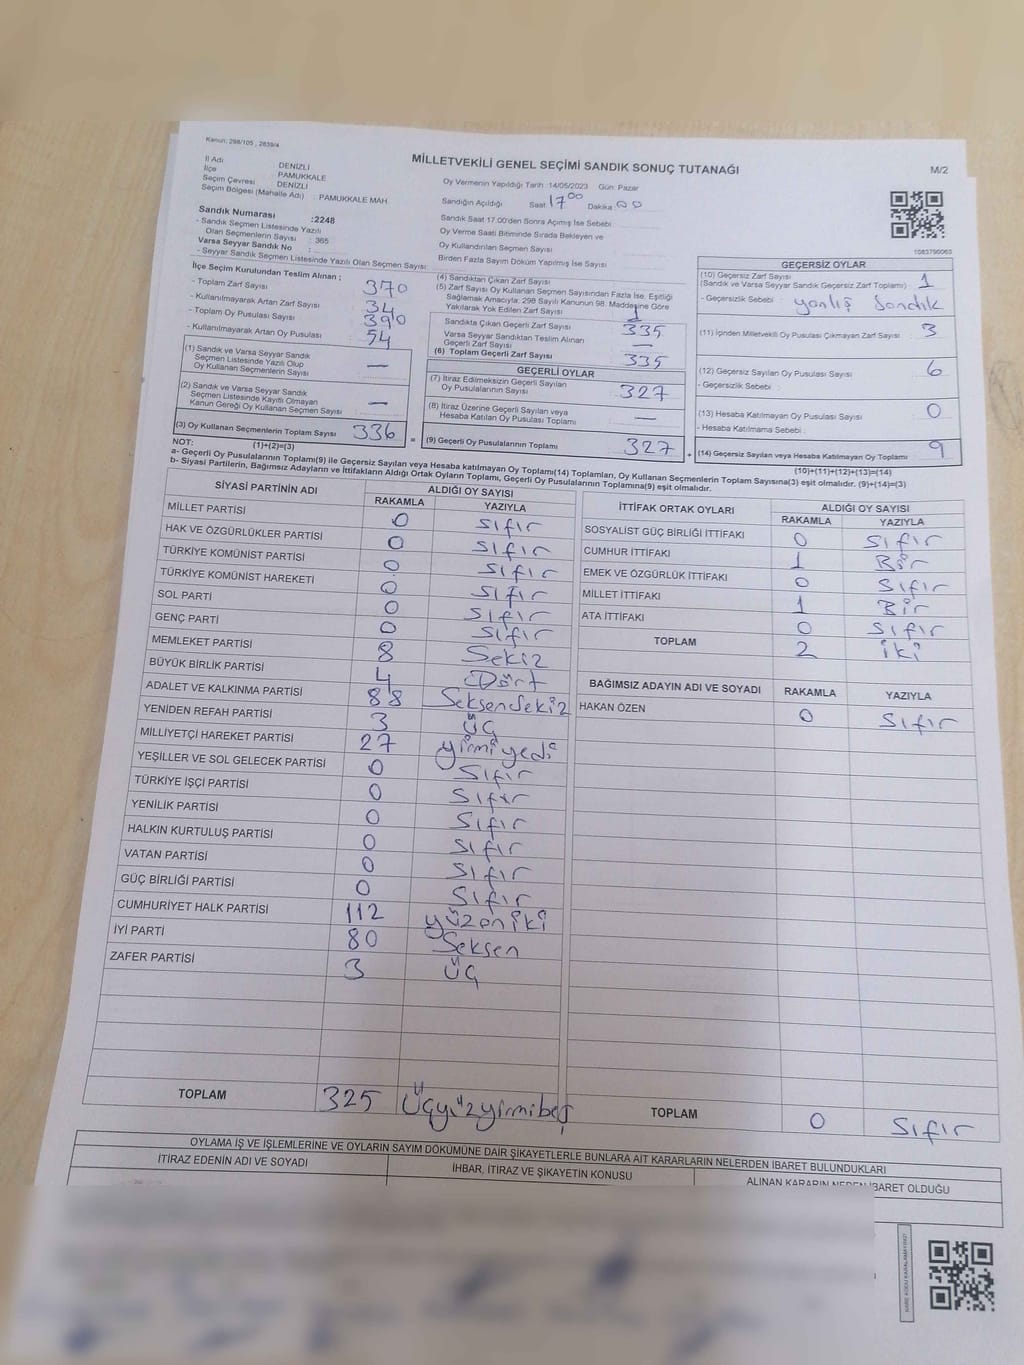 Kanun: 298/105 , 2839/4
MİLLETVEKİLİ GENEL SEÇİMİ SANDIK SONUÇ TUTANAĞI
M/2
İl Adı DENİZLİ
İlçe PAMUKKALE
Seçim Çevresi DENİZLİ
Seçim Bölgesi (Mahalle Adı) : PAMUKKALE MAH.
Sandık Numarası :2248
- Sandık Seçmen Listesinde Yazılı
Olan Seçmenlerin Sayısı : 365
Varsa Seyyar Sandık No :
- Seyyar Sandık Seçmen Listesinde Yazılı Olan Seçmen Sayısı:
Oy Vermenin Yapıldığı Tarih 14/05/2023 Gün: Pazar
Sandığın Açıldığı Saat 17 00 Dakika 00
Sandık Saat 17.00'den Sonra Açılmış İse Sebebi
Oy Verme Saati Bitiminde Sırada Bekleyen ve
Oy Kullandırılan Seçmen Sayısı
Birden Fazla Sayım Döküm Yapılmış İse Sayısı
1083790063
İlçe Seçim Kurulundan Teslim Alınan ;
- Toplam Zarf Sayısı 370
- Kullanılmayarak Artan Zarf Sayısı 34
- Toplam Oy Pusulası Sayısı 390
- Kullanılmayarak Artan Oy Pusulası : 54
(1) Sandık ve Varsa Seyyar Sandık
Seçmen Listesinde Yazılı Olup
Oy Kullanan Seçmenlerin Sayısı —
(2) Sandık ve Varsa Seyyar Sandık
Seçmen Listesinde Kayıtlı Olmayan
Kanun Gereği Oy Kullanan Seçmen Sayısı : —
(3) Oy Kullanan Seçmenlerin Toplam Sayısı 336
(4) Sandıktan Çıkan Zarf Sayısı
(5) Zarf Sayısı Oy Kullanan Seçmen Sayısından Fazla İse, Eşitliği
Sağlamak Amacıyla, 298 Sayılı Kanunun 98. Maddesine Göre
Yakılarak Yok Edilen Zarf Sayısı : 1
Sandıkta Çıkan Geçerli Zarf Sayısı 335
Varsa Seyyar Sandıktan Teslim Alınan
Geçerli Zarf Sayısı —
(6) Toplam Geçerli Zarf Sayısı 335
GEÇERLİ OYLAR
(7) İtiraz Edilmeksizin Geçerli Sayılan
Oy Pusulalarının Sayısı : 327
(8) İtiraz Üzerine Geçerli Sayılan veya
Hesaba Katılan Oy Pusulası Toplamı : —
= (9) Geçerli Oy Pusulalarının Toplamı 327
GEÇERSİZ OYLAR
(10) Geçersiz Zarf Sayısı
(Sandık ve Varsa Seyyar Sandık Geçersiz Zarf Toplamı) : 1
- Geçersizlik Sebebi : yanlış Sandık
(11) İçinden Milletvekili Oy Pusulası Çıkmayan Zarf Sayısı : 3
(12) Geçersiz Sayılan Oy Pusulası Sayısı : 6
- Geçersizlik Sebebi :
(13) Hesaba Katılmayan Oy Pusulası Sayısı : 0
- Hesaba Katılmama Sebebi :
+ (14) Geçersiz Sayılan veya Hesaba Katılmayan Oy Toplamı : 9
NOT: (1)+(2)=(3)
(10)+(11)+(12)+(13)=(14)
a- Geçerli Oy Pusulalarının Toplamı(9) ile Geçersiz Sayılan veya Hesaba katılmayan Oy Toplamı(14) Toplamları, Oy Kullanan Seçmenlerin Toplam Sayısına(3) eşit olmalıdır. (9)+(14)=(3)
b- Siyasi Partilerin, Bağımsız Adayların ve İttifakların Aldığı Ortak Oyların Toplamı, Geçerli Oy Pusulalarının Toplamına(9) eşit olmalıdır.
SİYASİ PARTİNİN ADI ALDIĞI OY SAYISI
RAKAMLA YAZIYLA
MİLLET PARTİSİ 0 Sıfır
HAK VE ÖZGÜRLÜKLER PARTİSİ 0 Sıfır
TÜRKİYE KOMÜNİST PARTİSİ 0 Sıfır
TÜRKİYE KOMÜNİST HAREKETİ 0 Sıfır
SOL PARTİ 0 Sıfır
GENÇ PARTİ 0 Sıfır
MEMLEKET PARTİSİ 8 Sekiz
BÜYÜK BİRLİK PARTİSİ 4 Dört
ADALET VE KALKINMA PARTİSİ 88 Seksensekiz
YENİDEN REFAH PARTİSİ 3 Üç
MİLLİYETÇİ HAREKET PARTİSİ 27 yirmiyedi
YEŞİLLER VE SOL GELECEK PARTİSİ 0 Sıfır
TÜRKİYE İŞÇİ PARTİSİ 0 Sıfır
YENİLİK PARTİSİ 0 Sıfır
HALKIN KURTULUŞ PARTİSİ 0 Sıfır
VATAN PARTİSİ 0 Sıfır
GÜÇ BİRLİĞİ PARTİSİ 0 Sıfır
CUMHURİYET HALK PARTİSİ 112 yüzoniki
İYİ PARTİ 80 Seksen
ZAFER PARTİSİ 3 Üç
TOPLAM 325 Üçyüzyirmibeş
İTTİFAK ORTAK OYLARI ALDIĞI OY SAYISI
RAKAMLA YAZIYLA
SOSYALİST GÜÇ BİRLİĞİ İTTİFAKI 0 Sıfır
CUMHUR İTTİFAKI 1 Bir
EMEK VE ÖZGÜRLÜK İTTİFAKI 0 Sıfır
MİLLET İTTİFAKI 1 Bir
ATA İTTİFAKI 0 Sıfır
TOPLAM 2 iki
BAĞIMSIZ ADAYIN ADI VE SOYADI RAKAMLA YAZIYLA
HAKAN ÖZEN 0 Sıfır
TOPLAM 0 Sıfır
OYLAMA İŞ VE İŞLEMLERİNE VE OYLARIN SAYIM DÖKÜMÜNE DAİR ŞİKAYETLERLE BUNLARA AİT KARARLARIN NELERDEN İBARET BULUNDUKLARI
İTİRAZ EDENİN ADI VE SOYADI İHBAR, İTİRAZ VE ŞİKAYETİN KONUSU ALINAN KARARIN NEDEN İBARET OLDUĞU
KARE KODU KARALAMAYINIZ!